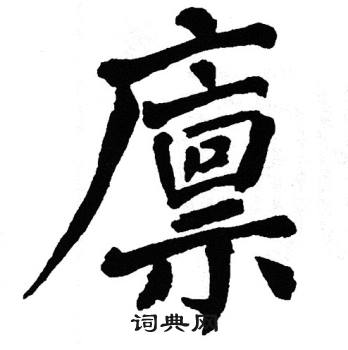 廪
词典网